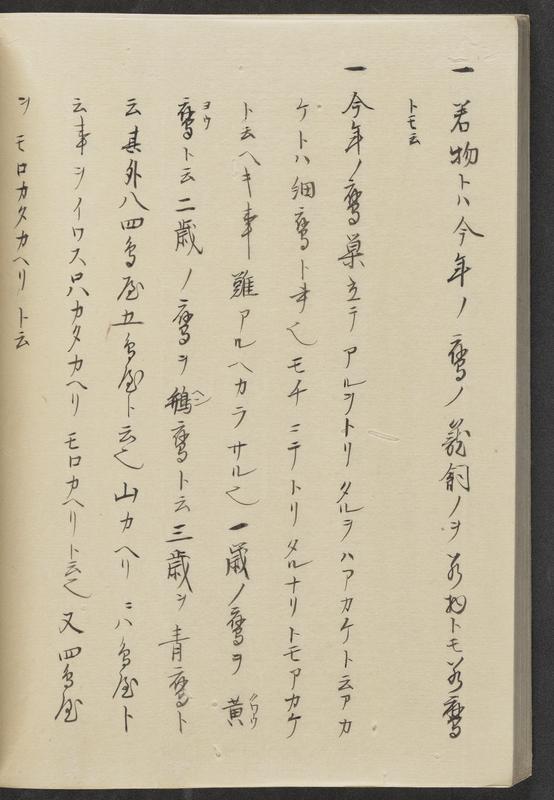 一 若物トハ今年ノ鷹ノ籠飼ノヲ若物トモ若鷹
トモ云
一 今年ノ鷹巣立テアルヲトリタルヲハアカケト云アカ
ケトハ細鷹ト書也モチニテトリタルナリトモアカケ
ト云ヘキ事難アルヘカラサル也一歳ノ鷹ヲ黄
鷹ト云二歳ノ鷹ヲ鶬鷹ト云三歳ヲ青鷹ト
云其外八四鳥屋五鳥屋ト云也山カヘリニハ鳥屋ト
云事ヲイワス只カタカヘリモロカヘリト云也又四鳥屋
ヲモロカタカヘリト云